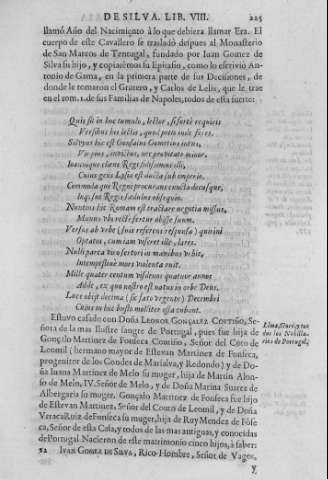 DE SILVA. LIB. VIII. 225
llamó Año del Nacimiento à lo que debiera llamar Era. El
cuerpo de este Cavallero se trasladó despues al Monasterio
de San Marcos de Tentugal, fundado por Juan Gomez de
Silva su hijo, y copiarémos su Epitafio, como lo escrivió An-
tonio de Gama, en la primera parte de sus Decisiones, de
donde le tomaron el Grutero, y Carlos de Lelis, que le trae
en el tom. 1. de sus Familias de Napoles, todos de esta suerte:
Quis sit in hoc tumulo, lector, si forte requiris
Versibus his lectis, quod petis inde feres.
Silvius hic est Gonsalus Gometius intus,
Vir pius, invictus, nec probitate minor.
Joanique clarus Regi fidissimus illi,
Cuius gens Lysiæ est ducta sub imperio.
Commoda qui Regni procurans cuncta decusque,
Inque suo Regi sedulus obsequio.
Nuntius hic Romam est tractare negotia missus,
Munus ubi recte fertur obisse suum.
Versus ab urbe (suis referens responsa) quirini
Optatos, cum iam viseret ille, lares.
Nulli parta viri fortori in manibus
Intempestivè mors violenta ruit.
Mille quater centum visdenos quatuor annos
Adde, ex quo nostro est natus in orbe Deus.
Luce obijt decima (sic fato urgente) Decembri
Cuius in hoc busto molliter ossa cubent.
Estuvo casado con Doña LEONOR GONÇALEZ COUTIÑO, Se-
ñora de la mas ilustre sangre de Portugal, pues fue hija de
Gonçalo Martinez de Fonseca Coutiño, Señor del Coto de
Leomil, (hermano mayor de Estevan Martinez de Fonseca,
progenitor de los Condes de Marialva, y Redondo) y de Do-
ña Juana Martinez de Melo su muger, hija de Martin Alon-
so de Melo, IV. Señor de Melo, y de Doña Marina Suarez de
Albergaria su muger. Gonçalo Martinez de Fonseca fue hijo
de Estevan Martinez, Señor del Couto de Leomil, y de Doña
Veraca Ruiz de Fonseca su muger, hija de Ruy Mendez de Fonse-
ca, Señor de esta Casa, y todos de las mas antiguas, y conocidas
de Portugal. Nacieron de este matrimonio cinco hijos, à saber:
Lima,
y to
dos los Nobilia-
rios de Portugal.
12 IVAN GOMEZ DE SILVA, Rico-Hombre, Señor de Vagos,